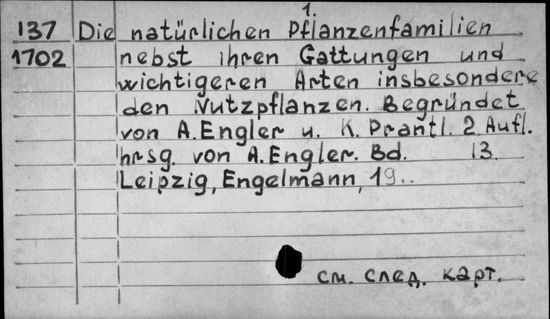 1.
137 Die natürlichen Pflanzenfamilien
1702 nebst ihren Gattungen und
wichtigeren Arten insbesondere
den Nutzpflanzen. Begründet
von A. Engler u. K. Prantl. 2 Aufl.
hrsg. von A. Engler. Bd. 13.
Leipzig, Engelmann, 19..
см. след. карт.